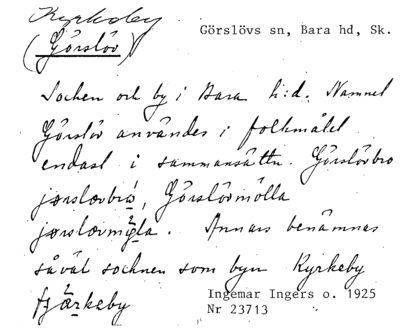 Kyrkeby
(Görslöv)
Görslövs sn, Bara hd, Sk.
Socken och by i Bara h:d. Namnet
Görslöv användes i folkmålet
endast i sammansättn. Görslövbro
jørslovbró, Görslövmölla
jørslovmø̀la. Annars benämnes
såväl socknen som byn Kyrkeby
tjærkeby
Ingemar Ingers o. 1925
Nr 23713